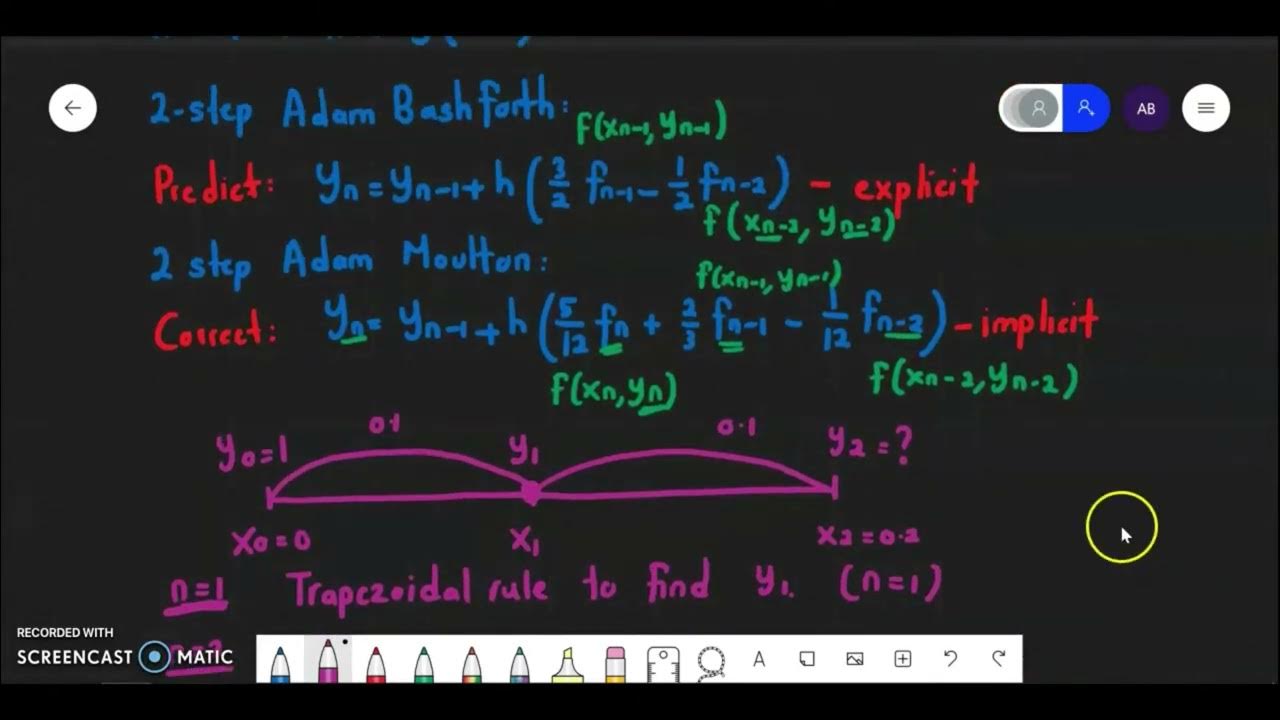 2-step Adam Bashforth:
f(xn-1, yn-1)
Predict: yn = yn-1 + h (3/2 fn-1 - 1/2 fn-2) - explicit
f(xn-2, yn-2)
2 step Adam Moulton:
f(xn-1, yn-1)
Correct: yn = yn-1 + h (5/12 fn + 2/3 fn-1 - 1/12 fn-2) - implicit
f(xn, yn)
f(xn-2, yn-2)
0.1
0.1
y0=1
y1
y2 = ?
x0 = 0
x1
x2 = 0.2
n=1 Trapezoidal rule to find y1. (n=1)
n=2
AB
RECORDED WITH
SCREENCAST MATIC
A